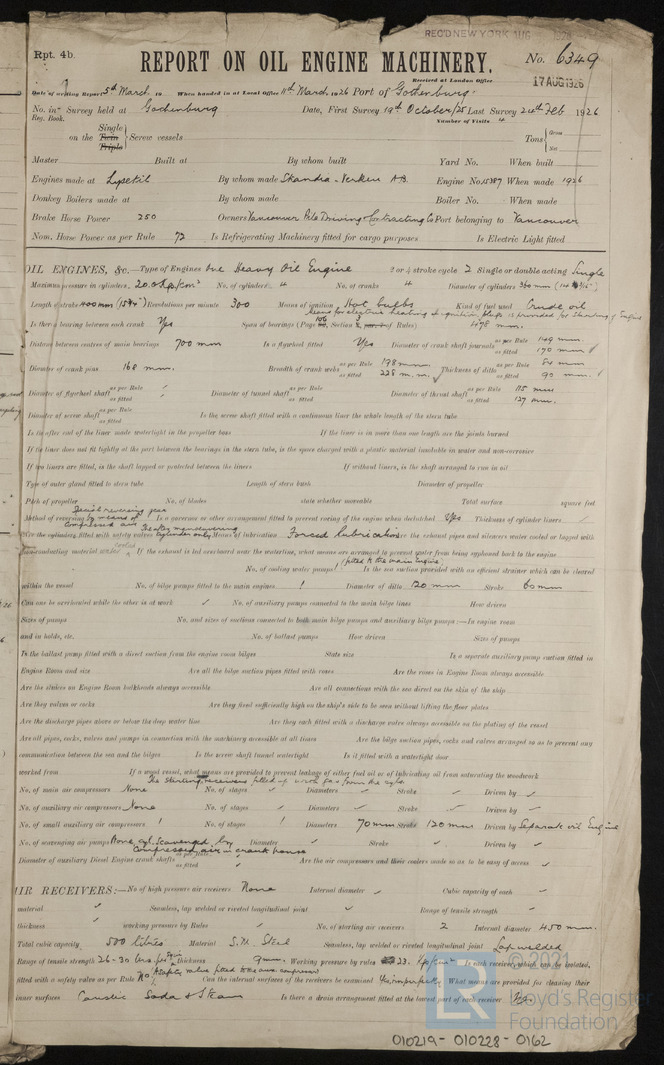 REC'D NEW YORK AUG 1926
Rpt. 4b.
REPORT ON OIL ENGINE MACHINERY.
No. 6349
Received at London Office 17 AUG 1926
Date of writing Report 5th March 19 When handed in at Local Office 11th March 1926 Port of Gothenburg
No. in Survey held at Gothenburg Date, First Survey 19th October/25 Last Survey 24th Feb 1926
Reg. Book. Number of Visits
Single
on the Twin Screw vessels Tons Gross
Triple Net
Master Built at By whom built Yard No. When built
Engines made at Lysekil By whom made Skandia-Verken A.B. Engine No. 15387 When made 1926
Donkey Boilers made at By whom made Boiler No. When made
Brake Horse Power 250 Owners Vancouver Pile Driving & Contracting Co Port belonging to Vancouver
Nom. Horse Power as per Rule 72 Is Refrigerating Machinery fitted for cargo purposes Is Electric Light fitted
OIL ENGINES, &c.—Type of Engines One Heavy Oil Engine 2 or 4 stroke cycle 2 Single or double acting Single
Maximum pressure in cylinders 20.0 kg/cm² No. of cylinders 4 No. of cranks 4 Diameter of cylinders 360 mm
Length of stroke 400 mm (15¾") Revolutions per minute 300 Means of ignition Hot bulbs Kind of fuel used Crude oil
Is there a bearing between each crank Yes Span of bearings (Page Section of Rules) 478 mm.
Distance between centres of main bearings 700 mm Is a flywheel fitted Yes Diameter of crank shaft journals as per Rule 149 mm. as fitted 170 mm ✓
Diameter of crank pins 168 mm. Breadth of crank webs as per Rule 198 mm as fitted 228 m.m. ✓ Thickness of ditto as per Rule 84 mm as fitted 90 mm. ✓
Diameter of flywheel shaft as per Rule as fitted Diameter of tunnel shaft as per Rule as fitted Diameter of thrust shaft as per Rule 115 mm as fitted 127 mm.
Diameter of screw shaft as per Rule as fitted Is the screw shaft fitted with a continuous liner the whole length of the stern tube
Is the after end of the liner made watertight in the propeller boss If the liner is in more than one length are the joints burned
If the liner does not fit tightly at the part between the bearings in the stern tube, is the space charged with a plastic material insoluble in water and non-corrosive
If two liners are fitted, is the shaft lapped or protected between the liners If without liners, is the shaft arranged to run in oil
Type of outer gland fitted to stern tube Length of stern bush Diameter of propeller
Pitch of propeller No. of blades state whether moveable Total surface square feet
Method of reversing by means of compressed air Is a governor or other arrangement fitted to prevent racing of the engine when declutched Yes Thickness of cylinder liners
Are the cylinders fitted with safety valves Means of lubrication Forced lubrication Are the exhaust pipes and silencers water cooled or lagged with
non-conducting material If the exhaust is led overboard near the waterline, what means are arranged to prevent water from being syphoned back to the engine
No. of cooling water pumps 1 (fitted to the main Engine) Is the sea suction provided with an efficient strainer which can be cleared
within the vessel No. of bilge pumps fitted to the main engines 1 Diameter of ditto 120 mm Stroke 60 mm
Can one be overhauled while the other is at work ✓ No. of auxiliary pumps connected to the main bilge lines How driven
Sizes of pumps No. and sizes of suctions connected to both main bilge pumps and auxiliary bilge pumps:—In engine room
and in holds, etc. No. of ballast pumps How driven Sizes of pumps
Is the ballast pump fitted with a direct suction from the engine room bilges State size Is a separate auxiliary pump suction fitted in
Engine Room and size Are all the bilge suction pipes fitted with roses Are the roses in Engine Room always accessible
Are the sluices on Engine Room bulkheads always accessible Are all connections with the sea direct on the skin of the ship
Are they valves or cocks Are they fixed sufficiently high on the ship's side to be seen without lifting the floor plates
Are the discharge pipes above or below the deep water line Are they each fitted with a discharge valve always accessible on the plating of the vessel
Are all pipes, cocks, valves and pumps in connection with the machinery accessible at all times Are the bilge suction pipes, cocks and valves arranged so as to prevent any
communication between the sea and the bilges Is the screw shaft tunnel watertight Is it fitted with a watertight door
worked from If a wood vessel, what means are provided to prevent leakage of either fuel oil or of lubricating oil from saturating the woodwork
No. of main air compressors None No. of stages Diameters ✓ Stroke ✓ Driven by ✓
No. of auxiliary air compressors None No. of stages ✓ Diameters ✓ Stroke ✓ Driven by ✓
No. of small auxiliary air compressors 1 No. of stages 1 Diameters 70 mm Stroke 120 mm Driven by Separate oil Engine
No. of scavenging air pumps None cyl. Scavenged by compressed air in crank house Diameter ✓ Stroke ✓ Driven by ✓
Diameter of auxiliary Diesel Engine crank shafts as per Rule as fitted Are the air compressors and their coolers made so as to be easy of access ✓
AIR RECEIVERS:—No. of high pressure air receivers None Internal diameter ✓ Cubic capacity of each ✓
material ✓ Seamless, lap welded or riveted longitudinal joint ✓ Range of tensile strength ✓
thickness ✓ working pressure by Rules ✓ No. of starting air receivers 2 Internal diameter 450 mm.
Total cubic capacity 500 litres Material S.M. Steel Seamless, lap welded or riveted longitudinal joint Lap welded
Range of tensile strength 26-30 tons per thickness 9 mm. Working pressure by rules 23. kg/cm² Each receiver, which can be isolated,
fitted with a safety valve as per Rule No Can the internal surfaces of the receivers be examined Yes, imperfectly What means are provided for cleaning their
inner surfaces Caustic Soda & Steam Is there a drain arrangement fitted at the lowest part of each receiver Yes
© 2021
LR Lloyd's Register
Foundation
010219-010228-0162